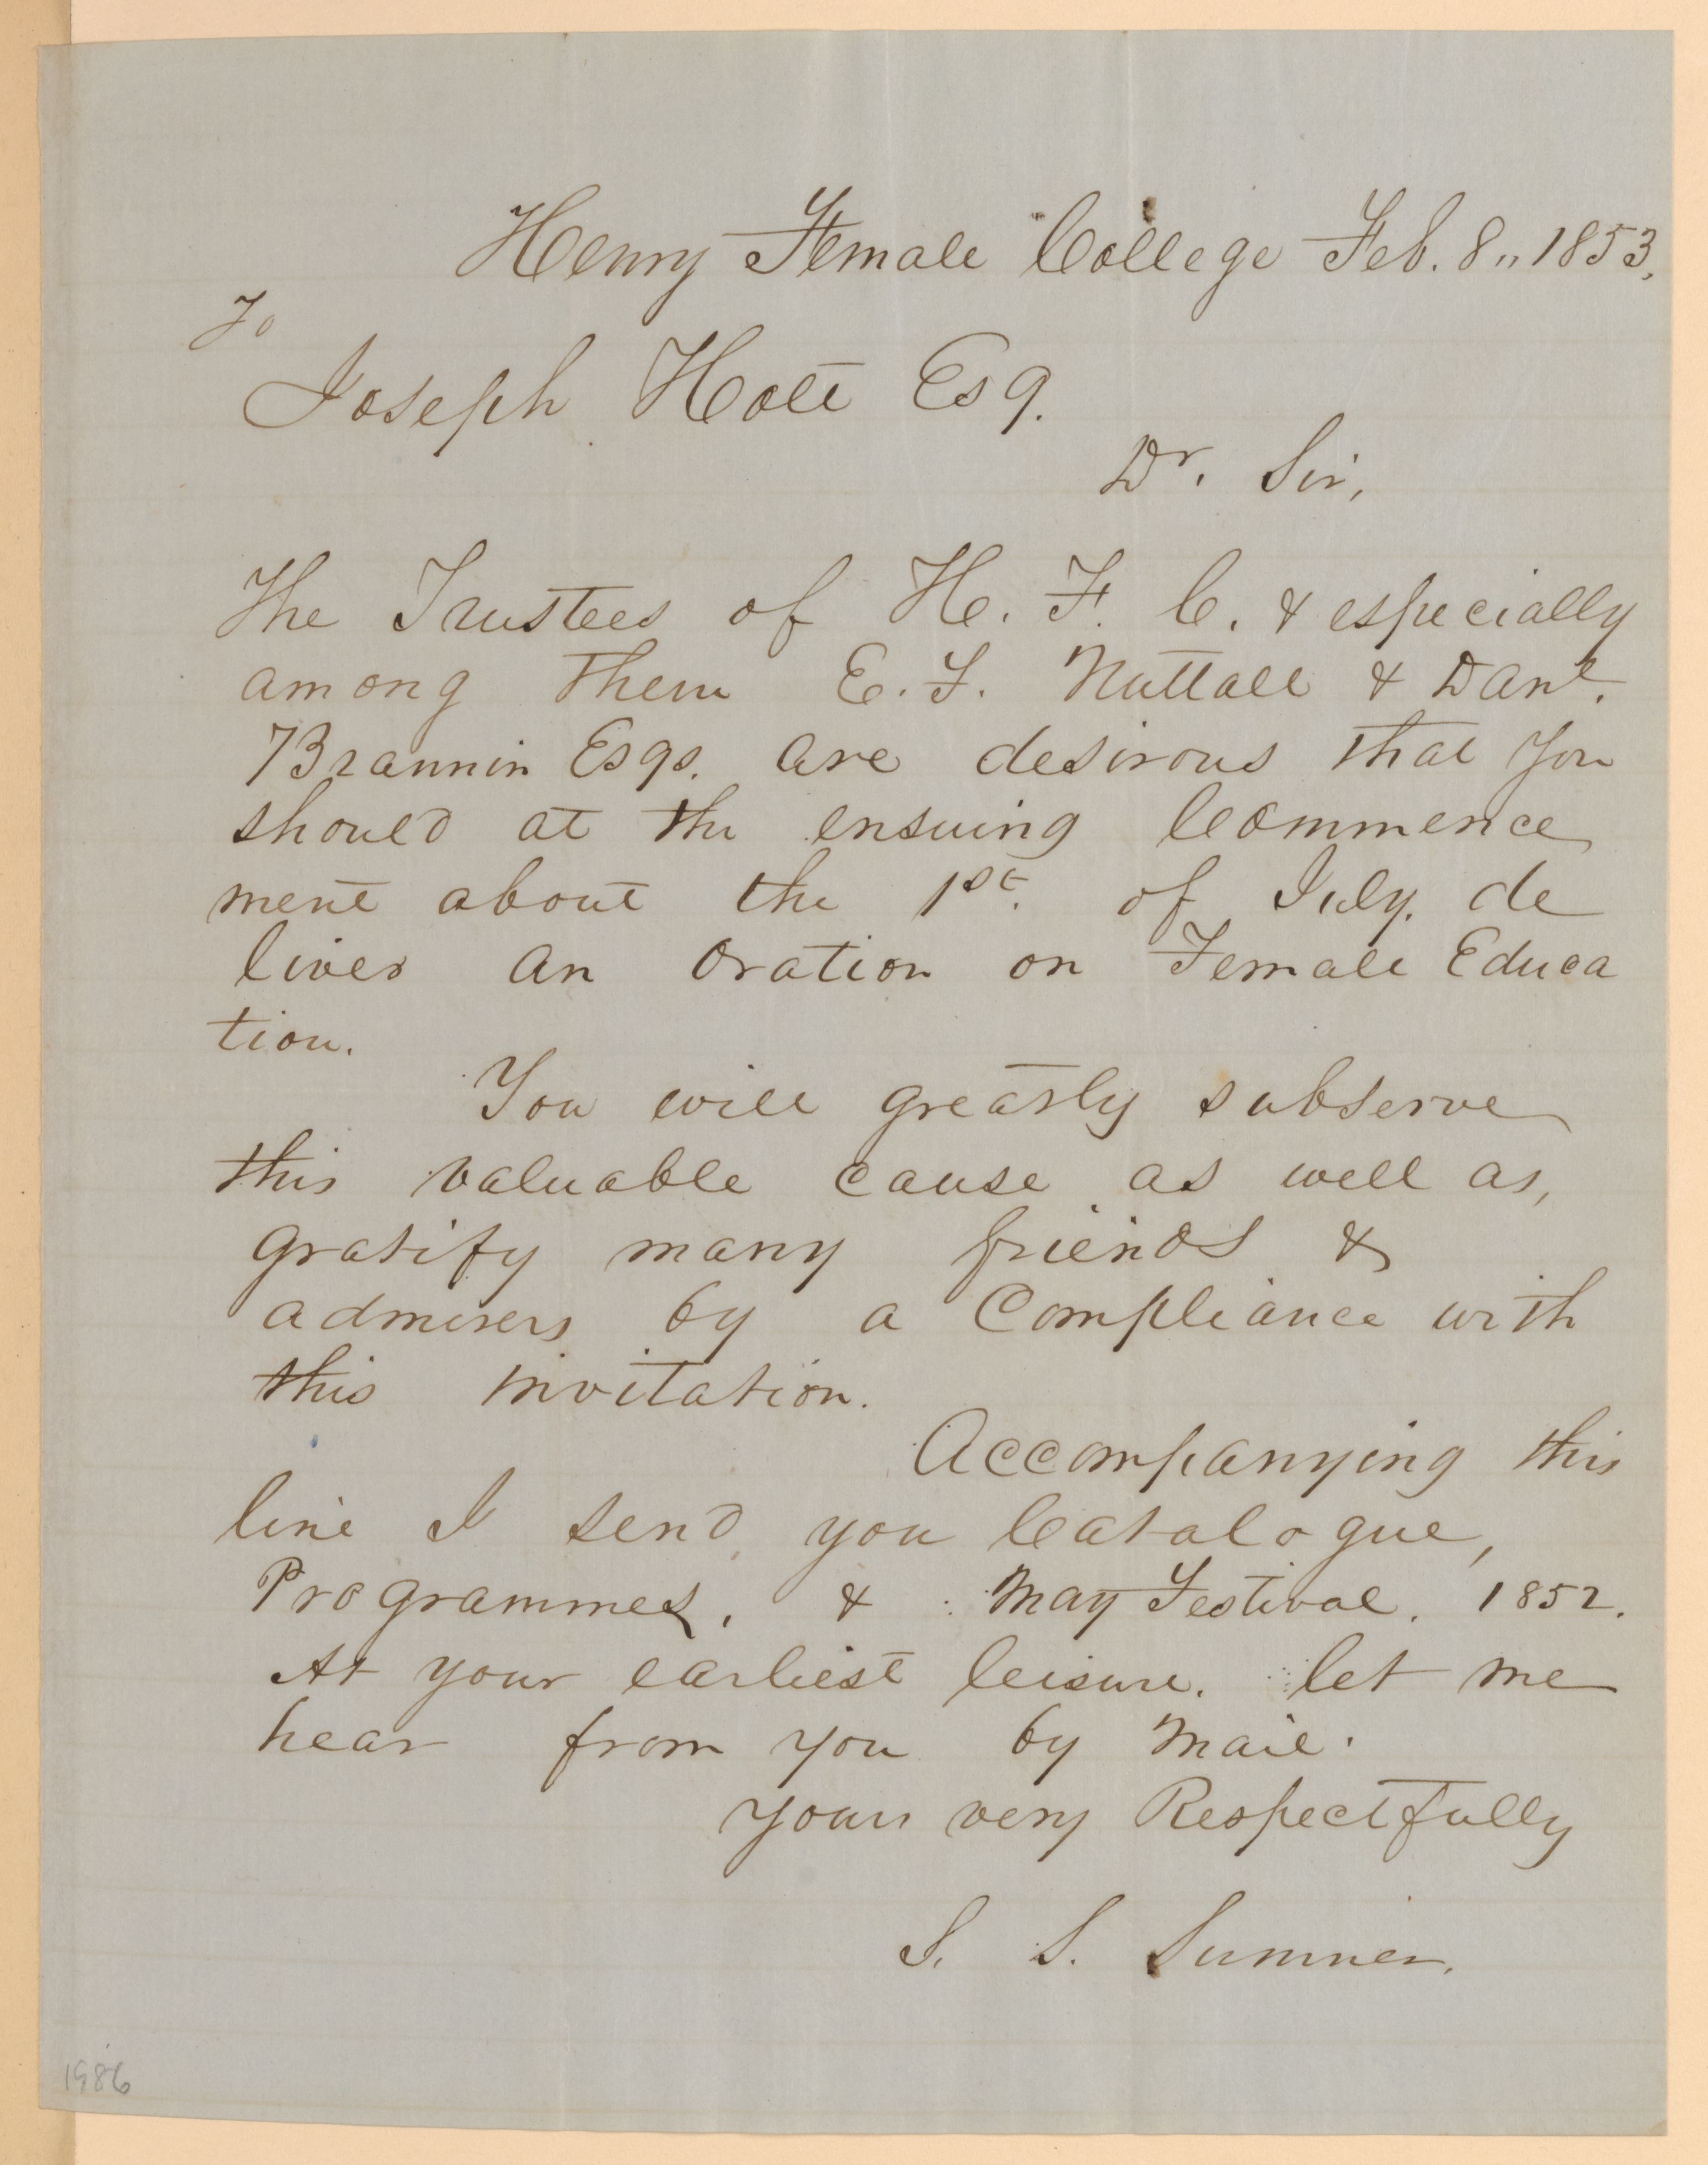 Henry Female College Feb. 8,, 1853,
To
Joseph Holt Esq.
Dr. Sir,
The Trustees of H. F. C. & especially
among them E. F. Nuttall & Danl.
Brannin Esqs. are desirous that you
should at the ensuing Commence
ment about the 1st. of July. de
liver an Oration on Female Educa
tion.
You will greatly subserve
this valuable cause as well as,
gratify many friends &
admirers by a Compliance with
this invitation.
Accompanying this
line I send you Catalogue,
Programmes, & May Festival. 1852.
At your earliest leisure. let me
hear from you by Mail.
Yours very Respectfully
S. S. Sumner.
1986